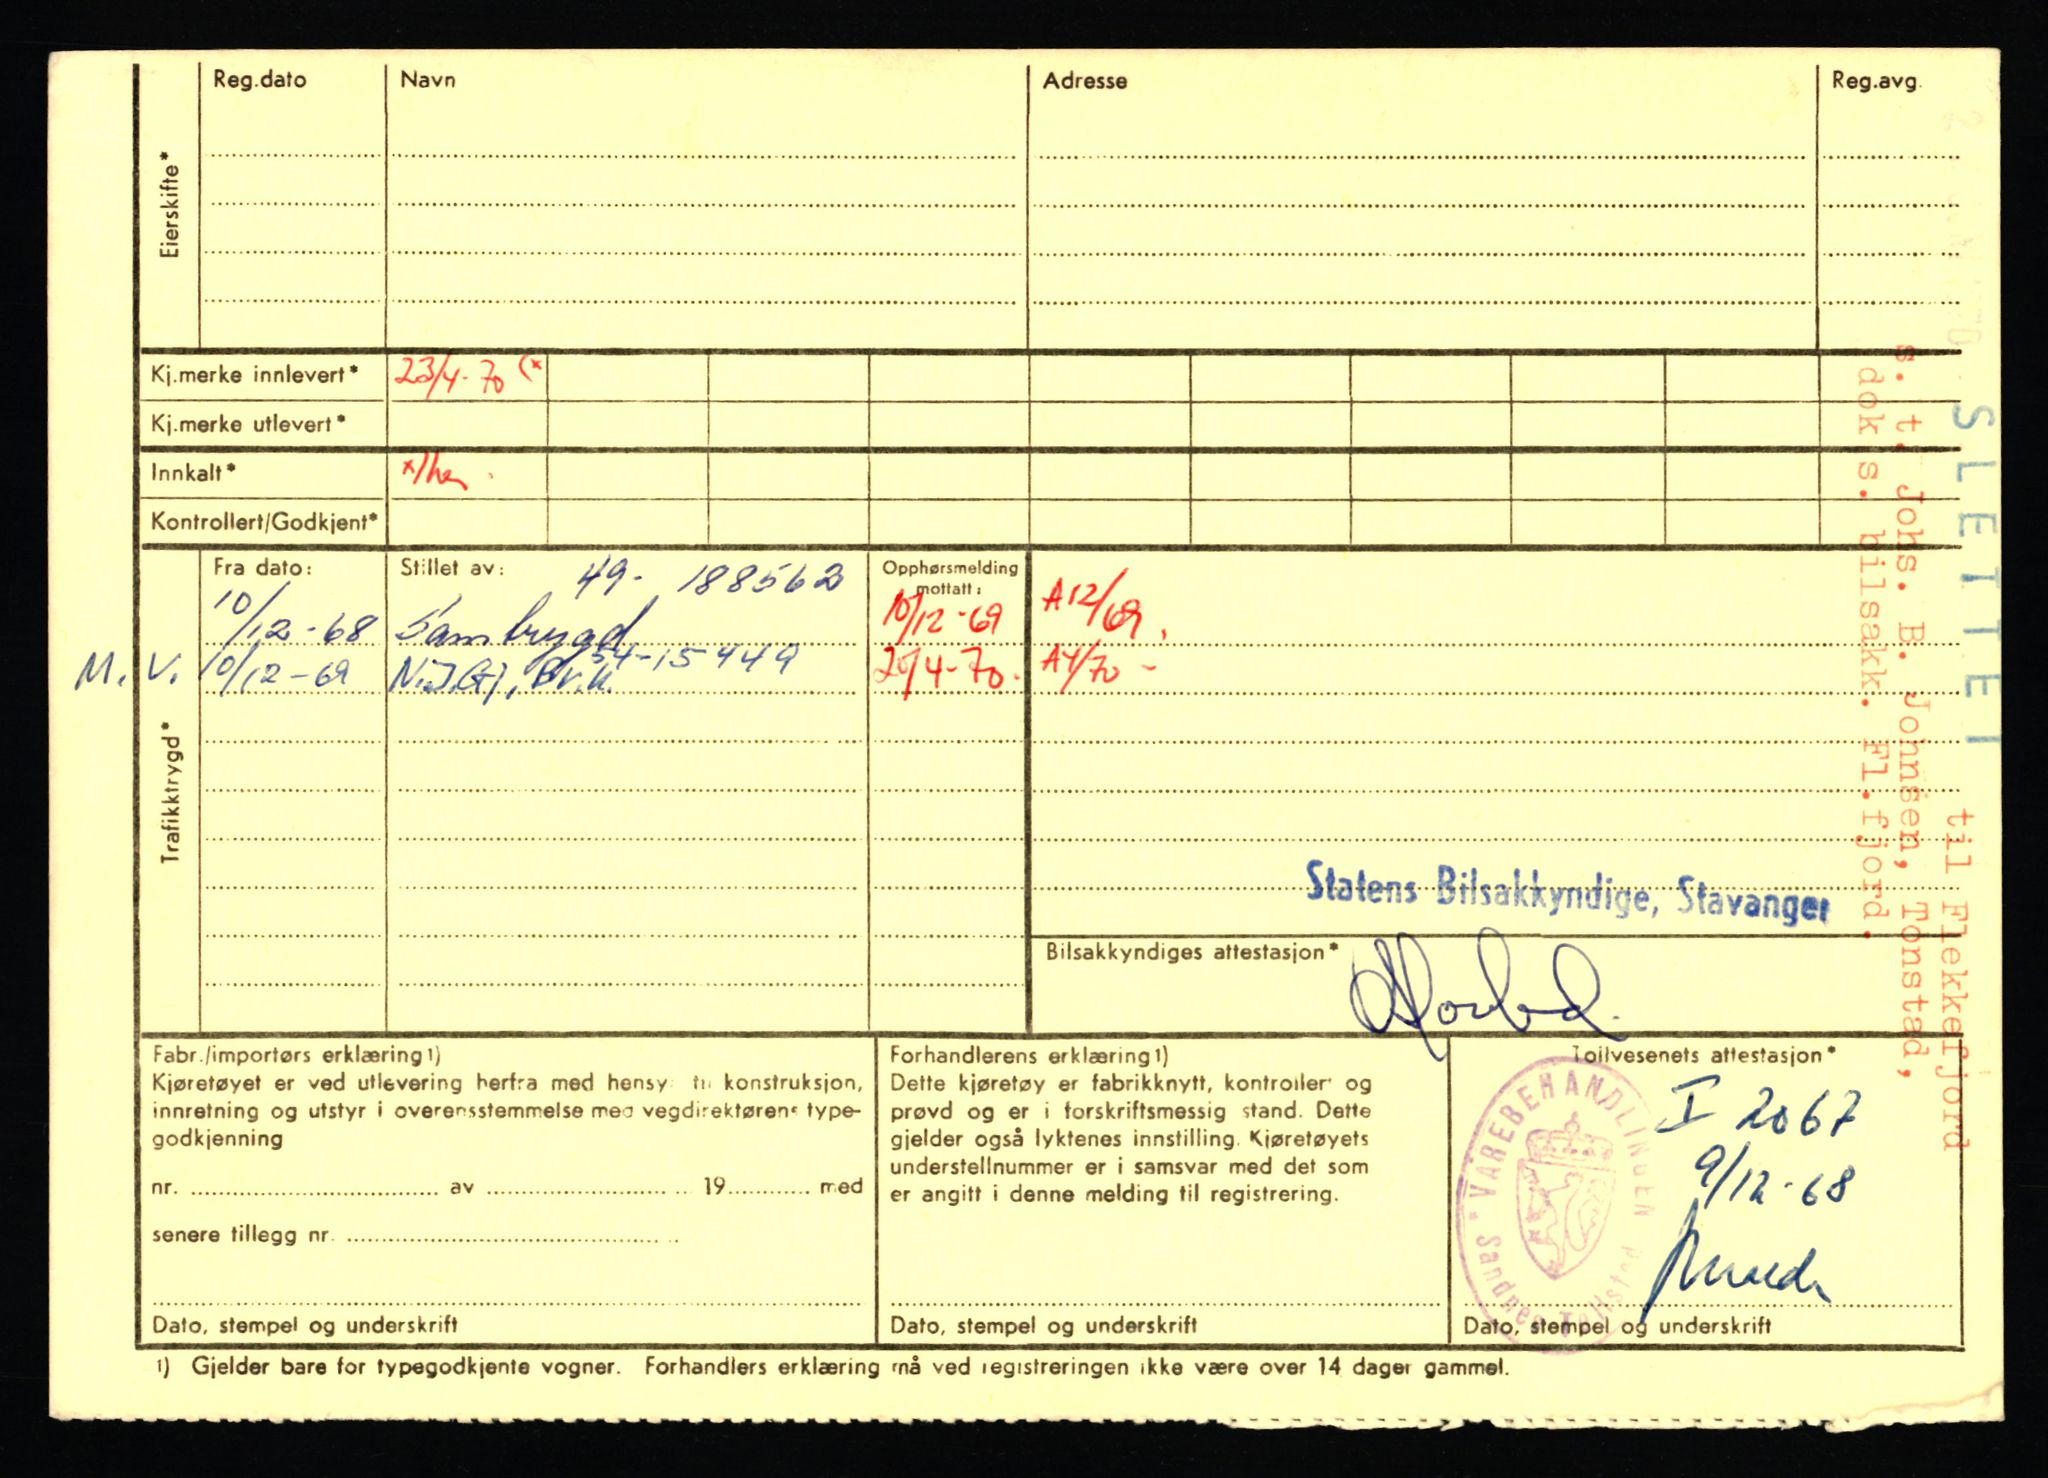 Reg.dato Navn Adresse Reg.avg.
Eierskifte*
Kj.merke innlevert* 23/4-70 (*
Kj.merke utlevert*
Innkalt*
Kontrollert/Godkjent*
Fra dato: Stillet av: 49- 188562 Opphørsmelding mottatt:
10/12-68 Samtrygd 10/12-69 A12/69.
M.V. 10/12-69 54-15449 A4/70 -
Trafikktrygd*
Statens Bilsakkyndige, Stavanger
Bilsakkyndiges attestasjon*
Fabr./importørs erklæring 1)
Kjøretøyet er ved utlevering herfra med hensyn til konstruksjon,
innretning og utstyr i overensstemmelse med vegdirektørens type-
godkjenning
nr. av 19 med
senere tillegg nr.
Dato, stempel og underskrift
Forhandlerens erklæring 1)
Dette kjøretøy er fabrikknytt, kontrollert og
prøvd og er i forskriftsmessig stand. Dette
gjelder også lyktenes innstilling. Kjøretøyets
understellnummer er i samsvar med det som
er angitt i denne melding til registrering.
Dato, stempel og underskrift
Tollvesenets attestasjon*
I 2067
9/12-68
* VAREBEHANDLINGEN * Sandnes Tollsted
Dato, stempel og underskrift
1) Gjelder bare for typegodkjente vogner. Forhandlers erklæring må ved registreringen ikke være over 14 dager gammel.
SLETTET
til Flekkefjord
s. t. Johs. B. Johnsen, Tonstad,
dok s. bilsakk. Fl.fjord.